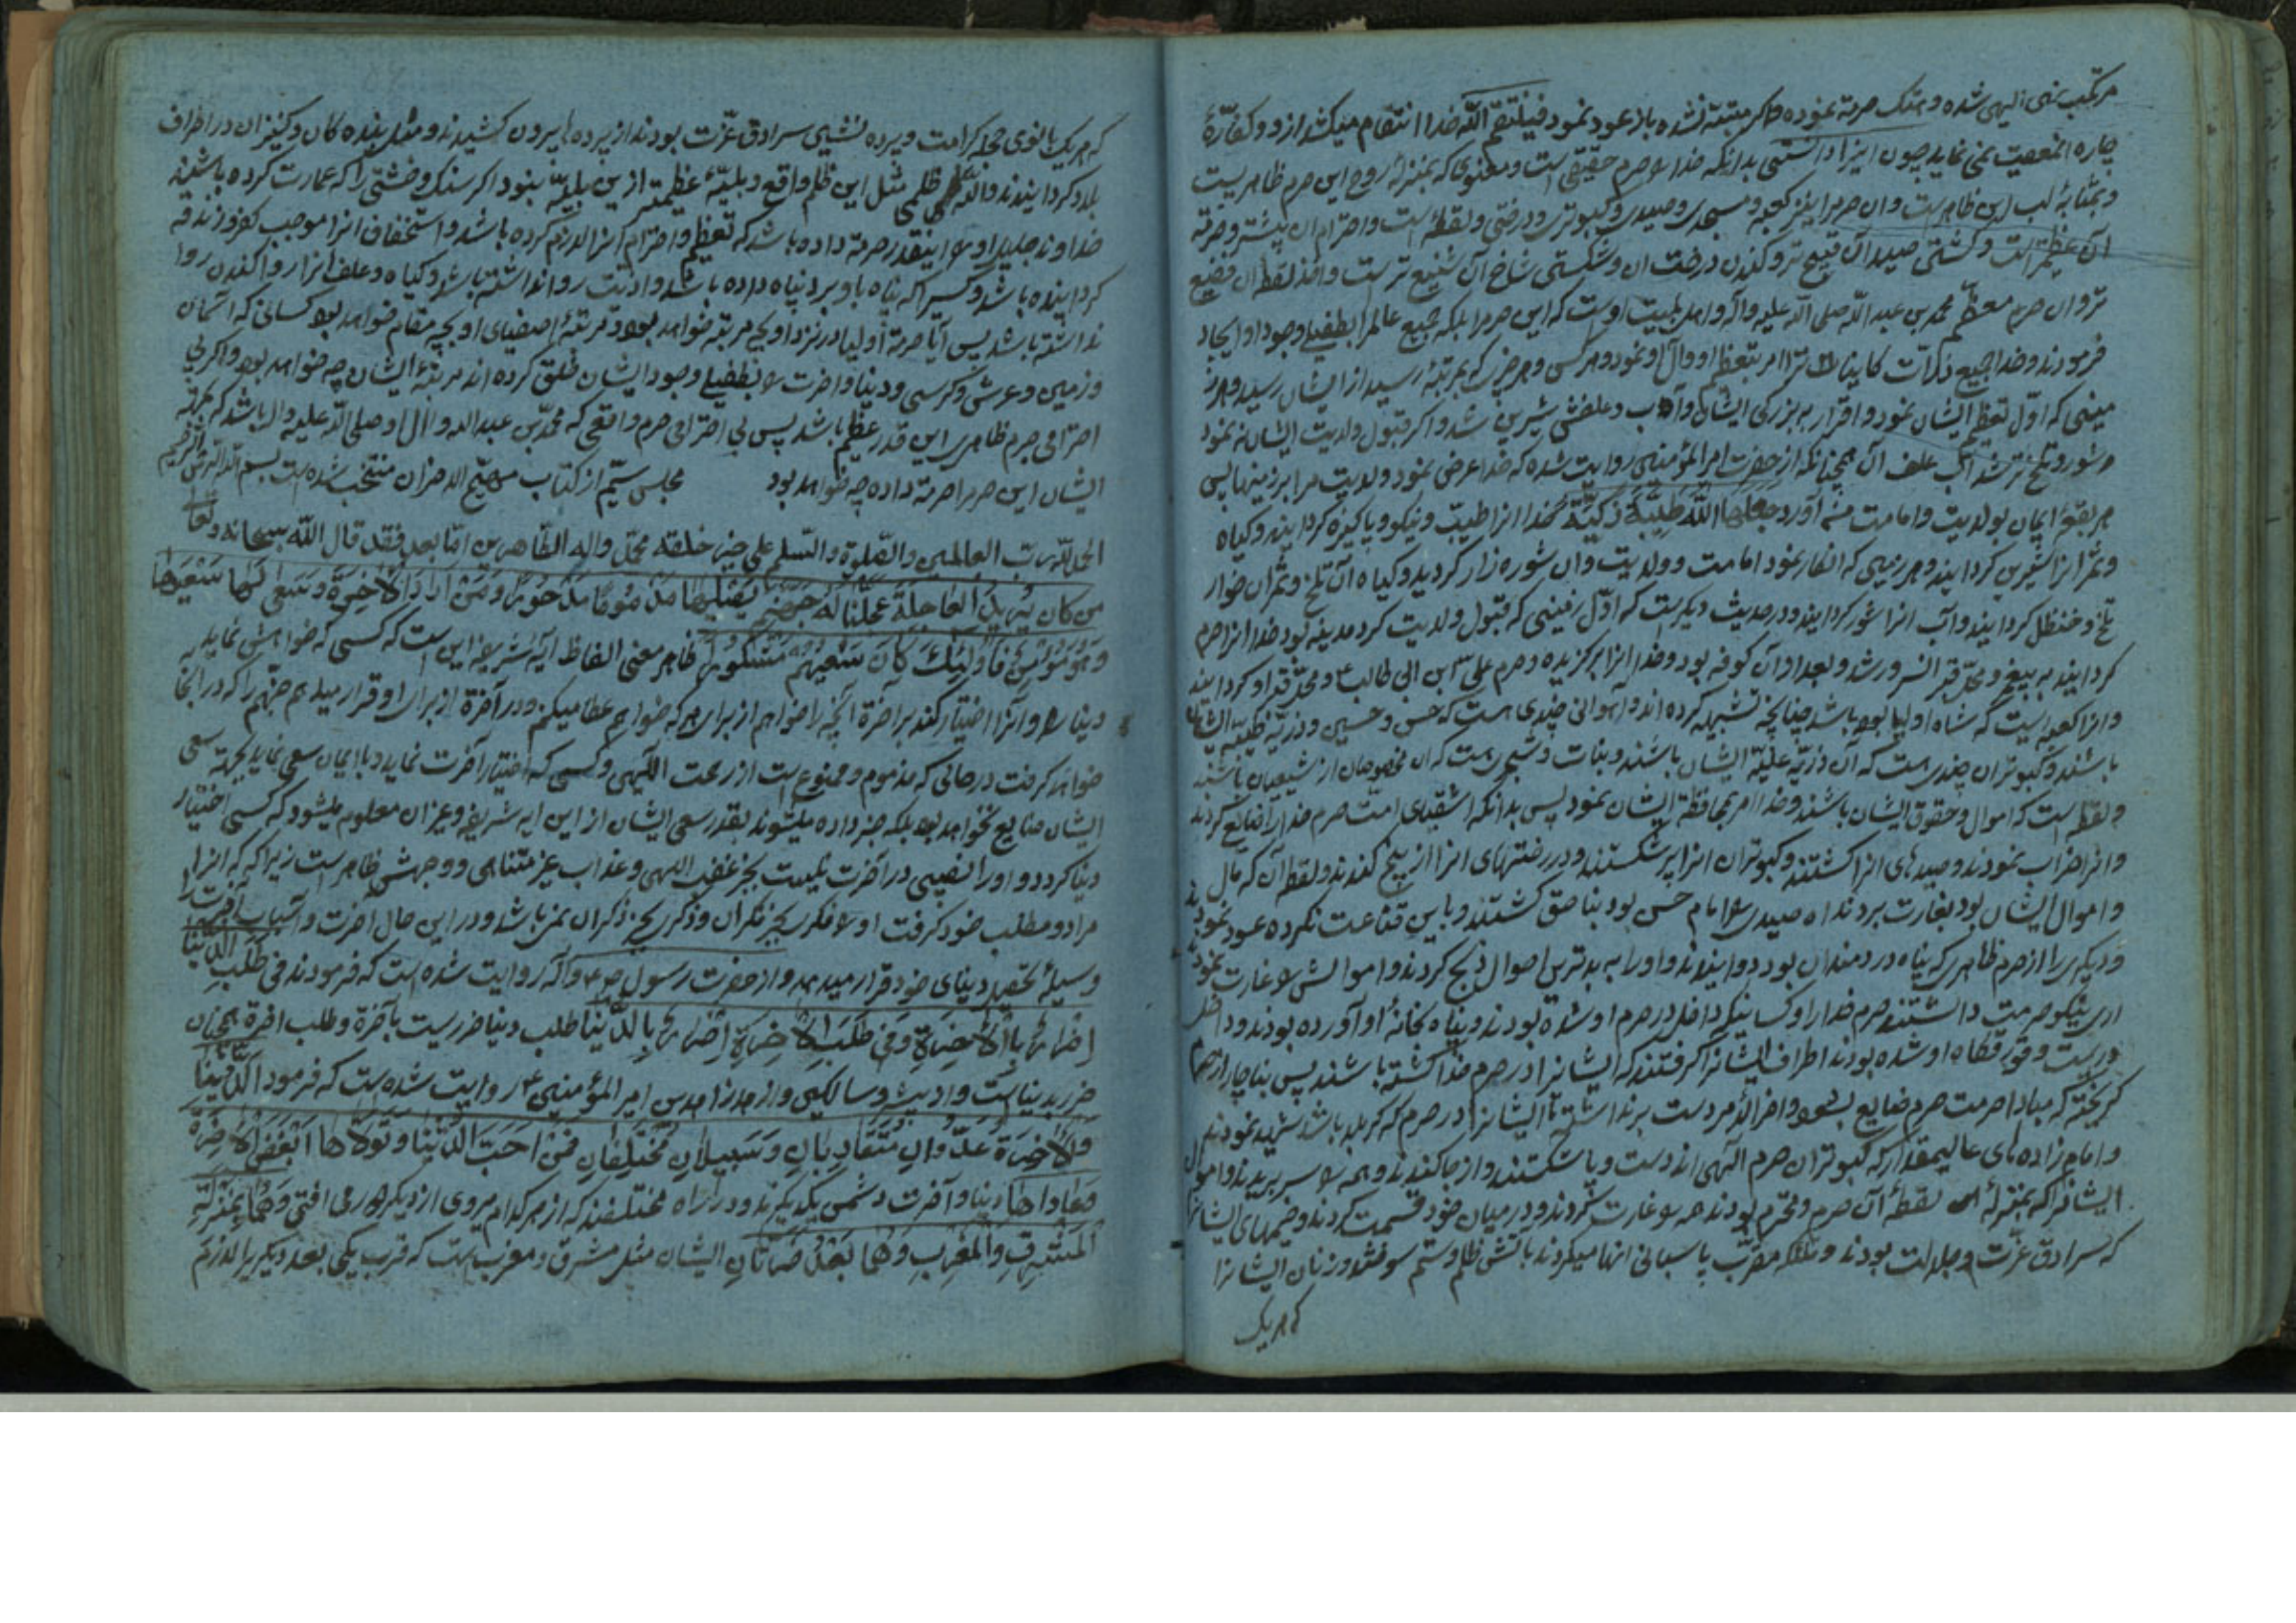 مرتکب نهی الهی شده و هتک حرمة نموده و اکر متنبّه نشده باز عود نمود فینتقم الله خدا انتقام میکشد ازو و کفّارۀ
چارۀ انمعصیت نمی نماید چون اینرا دانستی بدانکه خدا را حرم حقیقی است و معنوی که بمنزلۀ روح این حرم ظاهریست
و بمثابۀ لب این ظاهرست و ان حرم را نیز کعبه و مسجدی و صیدی و کبوتری و درختی و لقطۀ است و احترام ان بیشتر و حرمة
آن عظیمتر است و کشتن صید آن قبیح تر و کندن درخت ان و شکستن شاخ آن شنیع تر ست و اخذ لقطۀ ان فضیع
تر و ان حرم معظّم محمد بن عبد الله صلی الله علیه و آله و اهلبیت اوست که این حرم را بلکه جمیع عالم را بطفیل وجود او ایجاد
فرمودند و خدا جمیع ذرّات کاینات را امر بتعظیم او و آل او نمود و هر کس و هر چیزی که بمرتبۀ رسید از ایشان رسید و هر
زمینی که اوّل تعظیم ایشان نمود و اقرار به بزرکی ایشان و آب و علفش شیرین شد و اکر قبول ولایت ایشان نه نمود
و شور و تلخ تر شد آب و علف آن همچنانکه از حضرت امیر المؤمنین روایت شده که خدا عرض نمود ولایت مرا بر زمینها پس
هر بقعۀ ایمان بولایت و امامت من آورد جعلها الله طیّبة زکیّة خدا انرا طیب و نیکو و پاکیزه کردانید و کیاه
و ثمر انرا شیرین کردانید و هر زمینی که انکار نمود امامت و ولایت و ان شوره زار کردید و کیاه آن تلخ و ثمر ان خوار
تلخ و حنظل کردانید و آب انرا شور کردانید و در حدیث دیکر ست که اوّل زمینی که قبول ولایت کرد مدینه بود خدا انرا حرم
کردانید به پیغمبر و محلّ قبر انسرور شد و بعد از آن کوفه بود و خدا انرا برکزیده و حرم علی ابن ابی طالب و محلّ قبر او کردانید
و انرا کعبه ایست که شاه اولیا بوده باشد چنانچه تشبیه کرده اند و آهوانی چندی هست که حسن و حسین و ذریّه طیّبه ایشان
باشند و کبوتران چندی ست که آن ذریّه علیّه ایشان باشند و بنات و شجری هست که ان مخصوصان از شیعیان باشند
و لقطۀ است که اموال و حقوق ایشان باشند و خدا امر بمحافظة ایشان نمود پس بدانکه اشقیای امت حرم خدا را ضایع کردند
و انرا خراب نمودند و صیدهای انرا کشتند و کبوتران انرا پر شکستند و درختهای انرا از بیخ کندند و لقطۀ آن که مال
و اموال ایشان بود بغارت بردند اه صیدی را امام حسن بود بناحق کشتند و باین قناعت نکرده عود نمودند
و دیکری را از حرم ظاهری که پناه دردمندان بود دوانیدند و او را به بدترین احوال ذبح کردند و اموالش را غارت نمودند
اری نیکو حرمت داشتند حرم خدا را و کسانیکه داخل در حرم او شده بودند و پناه بخانۀ او آورده بودند و داخل
کریخته که مبادا حرمت حرم ضایع بشود و اخر الامر دست برنداشتند تا ایشانرا در حرم که کربلا باشد شهید نمودند
و امام زاده های عالیمقدار که کبوتران حرم الهی اند دست و پا شکستند و از جا کندند و همه را سر بریدند و اموال
ایشانرا که بمنزلۀ لقطۀ آن حرم محترم بودند همه را غارت کردند و در میان خود قسمت کردند و خیمهای ایشانرا
که سرادق عزّت و جلالت بودند و ملائکه مقرّب پاسبانی انها میکردند باتش ظلم و ستم سوختند و زنان ایشانرا
که هر یک
که هر یک بانوی حجلۀ کرامت و پرده نشین سرادق عزّت بودند از پرده ها بیرون کشیدند و مثل بنده کان و کنیزان در اطراف
بلاد کردانیدند و الله ظلمی مثل این ظلم واقع و بلیّۀ عظیمتر از بن بلیّه نبود اکر سنک و خشتی را که عمارت کرده باشند
خداوند جلیل او را اینقدر حرمة داده باشد که تعظیم و احترام انرا لازم کرده باشد و استخفاف انرا موجب کفر و زندقه
کردانیده باشد و کسیرا که پناه باو برد پناه داده باشد و اذیّت روا نداشته باشد و کیاه و علف انرا روا کندن روا
نداشته باشد پس آیا حرمة اولیا در نزد او بچه مرتبه خواهد بود و مرتبۀ اصفیای او بچه مقام خواهد بود کسانی که اسمان
و زمین و عرش و کرسی و دنیا و اخرت را بطفیل وجود ایشان خلق کرده اند مرتبۀ ایشان چه خواهد بود و اکر بی
احترامی حرم ظاهری این قدر عظیم باشد پس بی احترامی حرم واقعی که محمّد بن عبد الله و آل او صلی الله علیه و ال باشد که بحرمة
ایشان این حرم را حرمة داده چه خواهد بود مجلس سیّم از کتاب مهیّج الاحزان منتخب شده ست بسم الله الرحمن الرحیم
الحمد لله ربّ العالمین و الصّلوة و السّلم علی خیر خلقه محمّد و اله الطّاهرین امّا بعد فقد قال الله سبحانه و تعا
من کان یرید العاجلة عجّلنا له جهنّم یصلیها مذموما مدحورا و من اراد الاخرة و سعی لها سعیها
و هو مؤمن فاولئک کان سعیهم مشکورا ظاهر معنی الفاظ آیۀ شریفه این ست که کسی که خواهش نماید
دنیا را و آنرا اختیار کند بر اخرة آنچه را خواهم از برای هر که خواهم عطا میکنم و در آخرة از برای او قرار میدهم جهنّم را که در انجا
خواهد کرفت در حالتی که مذموم و ممنوع است از رحمت الّهی و کسی که اختیار آخرت نماید و با ایمان سعی نماید بجهة سعی
ایشان ضایع نخواهد بود بلکه جزا داده میشوند بقدر سعی ایشان از این ایه شریفه و غیر ان معلوم میشود که کسی اختیار
دنیا کرد و او را نصیبی در آخرت نیست بجز غضب الهی و عذاب غیر متناهی و وجهش ظاهر است زیرا که که انرا
مراد و مطلب خود کرفت او را فکری بجز فکر آن و ذکری بجز ذکر ان نمی باشد و در این حال اخرت و اسباب آخرت را
وسیلۀ تحصیل دنیای خود قرار میدهد و از حضرت رسول ص و آله روایت شده است که فرمودند فی طلب الدّنیا
اضرار بالاخرة و فی طلب الاخرة اضرار بالدّنیا طلب دنیا ضرر یست بآخرة و طلب اخرة همچنان
ضرر بدنیاست و از امیر المؤمنین ع روایت شده ست که فرمود الدّنیا
و الاخرة عدّوان متفادیان و سبیلان مختلفان فمن احبّ الدّنیا و تولاّها ابغض الاخرة
و عاداها دنیا و آخرت دشمن یکدیکرند و دو راه مختلفند که از هر کدام میروی از دیکر دور می افتی و هما بمنزلة
المشرق و المغرب و هما بعد ضرّتان ایشان مثل مشرق و مغرب ست که قرب یکی بعد دیکریرا لازم